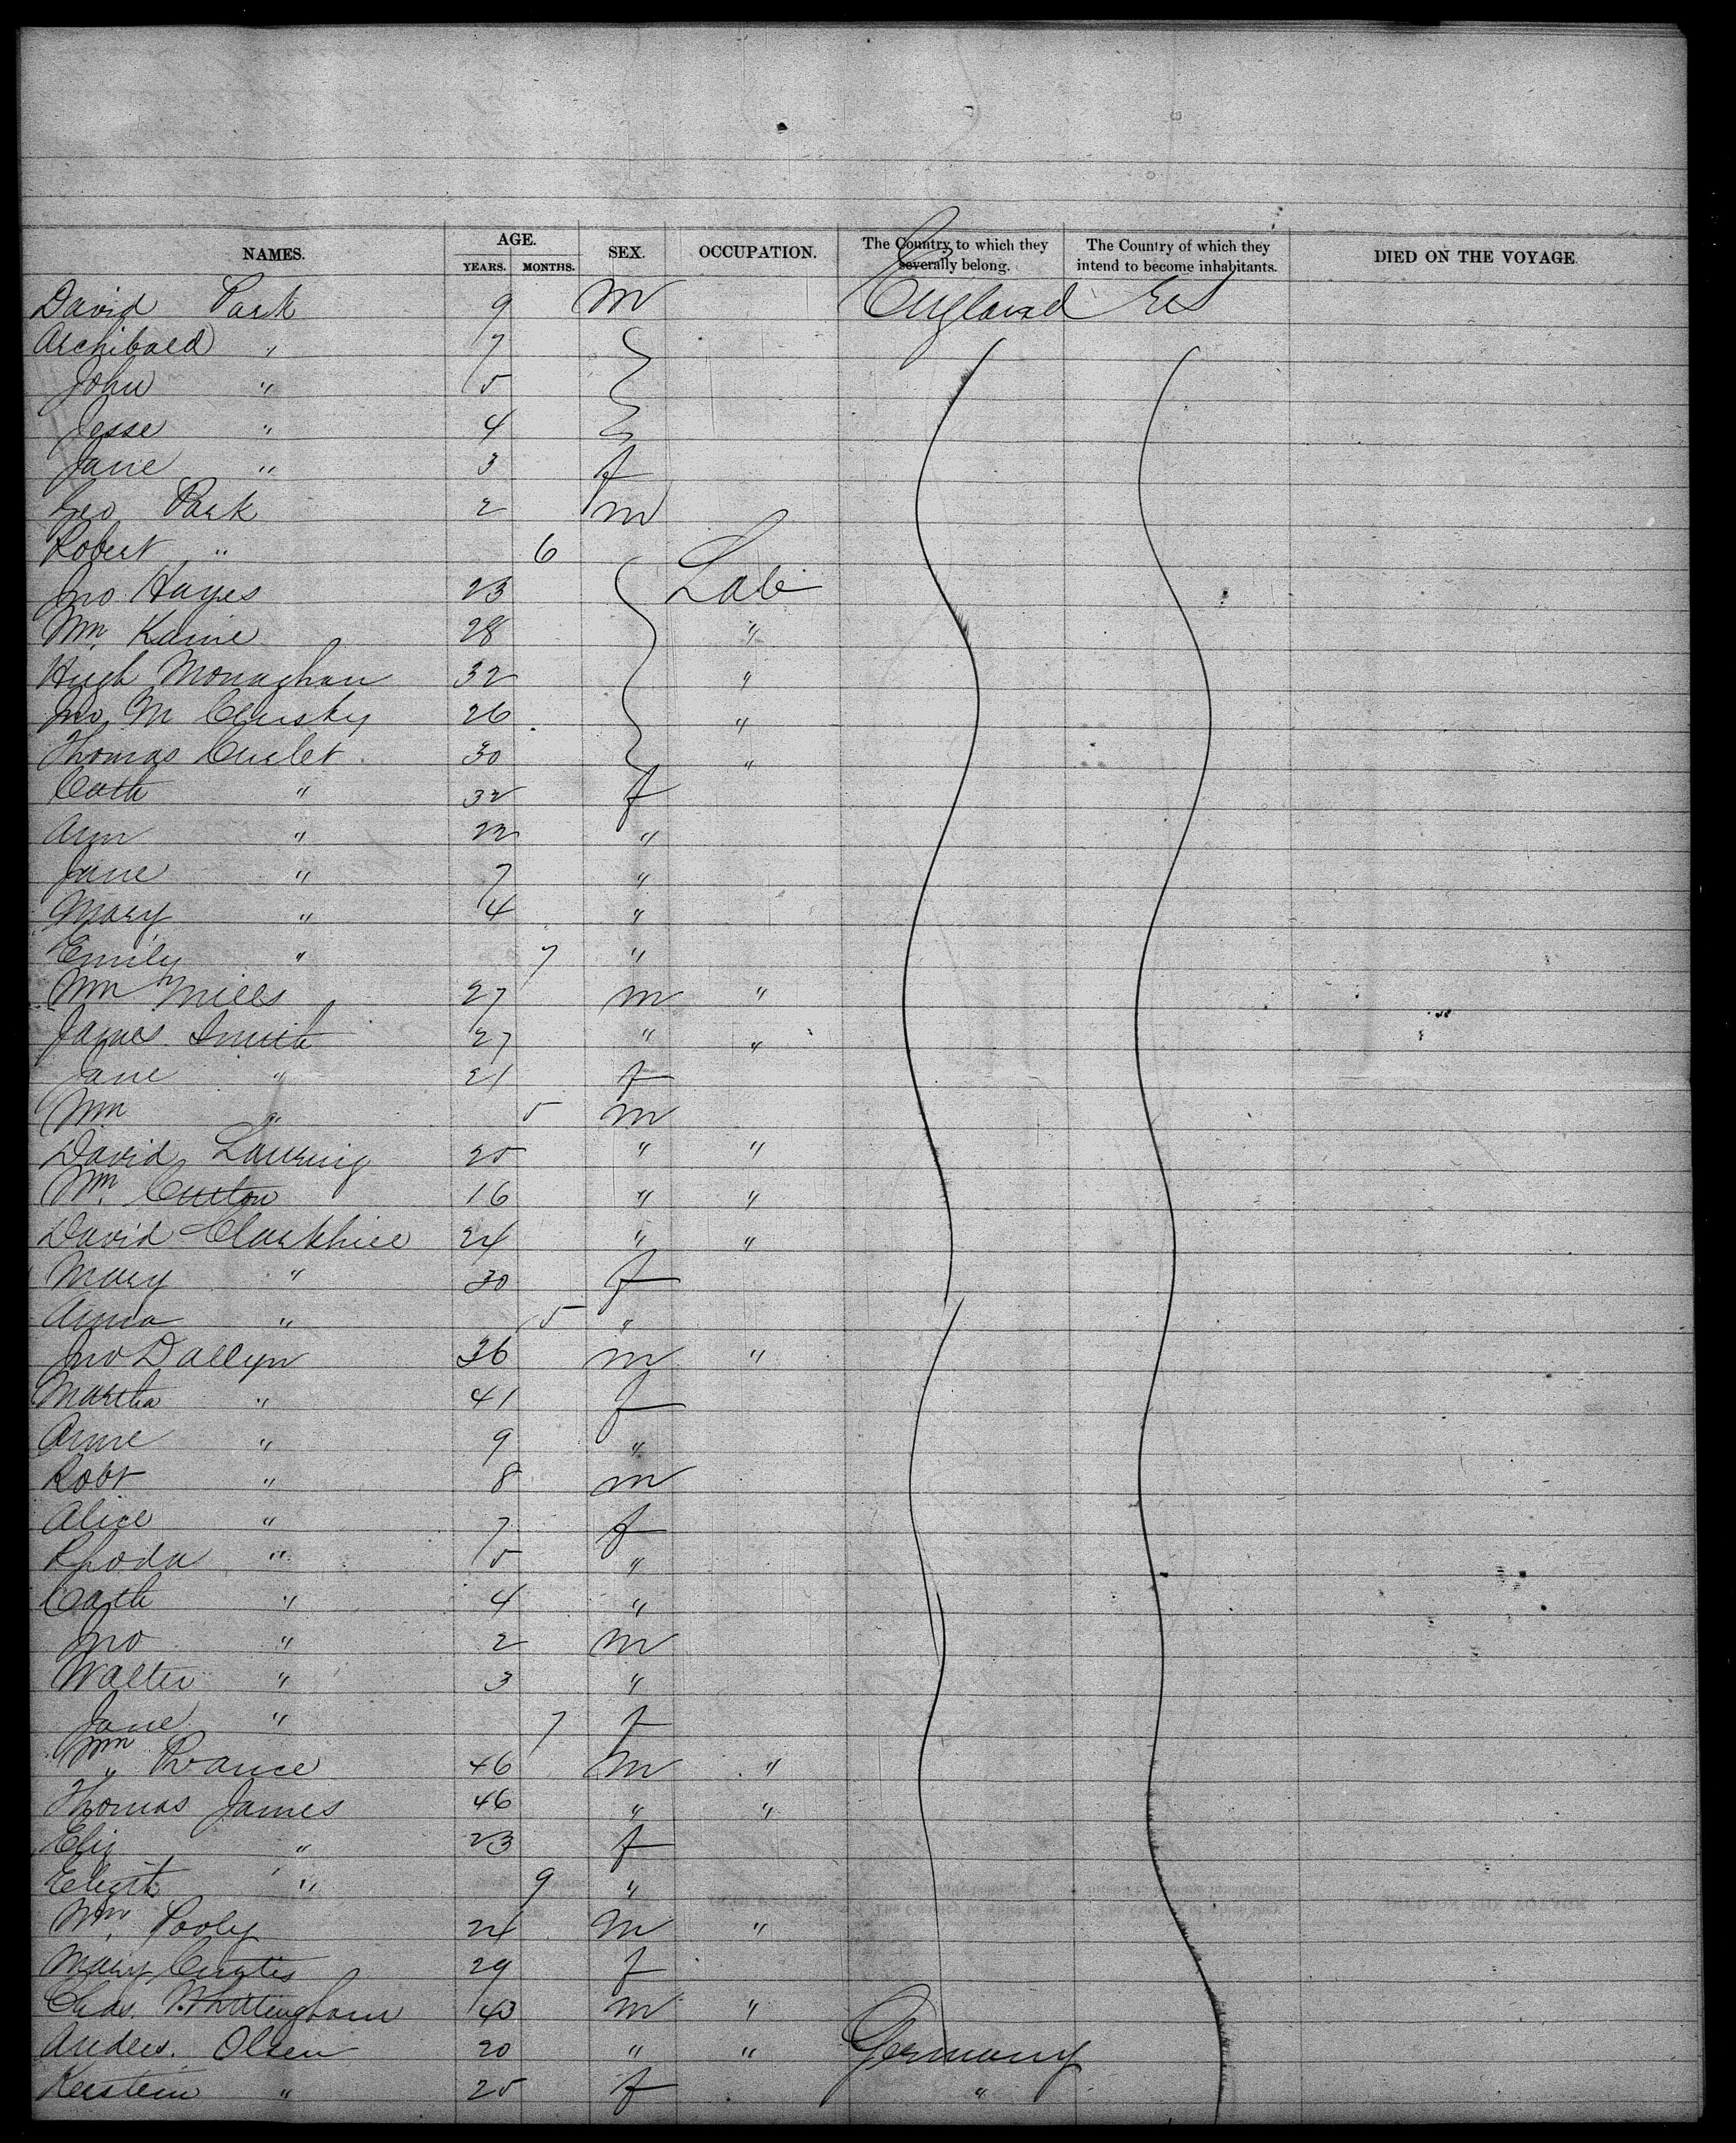 NAMES. AGE. SEX. OCCUPATION. The Country to which they severally belong. The Country of which they intend to become inhabitants. DIED ON THE VOYAGE
YEARS. MONTHS.
David Park 9 m England
Archibald " 7
John " 5
Jesse " 4
Jane " 3 f
Geo Park 2 m
Robert " 6
Jno Hayes 23 Lab
Wm. Kaine 28 "
Hugh Monaghan 32 "
Jno. M Clusky 26 "
Thomas 30 "
Cath " 32 f
Ann " 22 "
Jane " 7 "
Mary " 4 "
Emily " 7 "
Wm Mills 27 m "
James Smith 27 " "
Jane " 21 f
Wm " 5 m
David 25 " "
Wm. 16 " "
David Clarkhill 24 " "
Mary " 30 f
Anna " 5 "
Jno Dallyn 36 m "
Martha " 41 f
Anne " 9 "
Robt " 8 m
Alice " 7 f
Rhoda " 5 "
Cath " 4 "
Jno " 2 m
Walter " 3 "
Jane " 7 f
Wm " 46 m "
Thomas James 46 " "
Eliz " 23 f
" 9 "
Wm. Pooly 24 m "
Mary Curtis 29 f
Chas. Whittingham 43 m "
Anders. Olsen 20 " " Germany
Kerstein " 25 f "